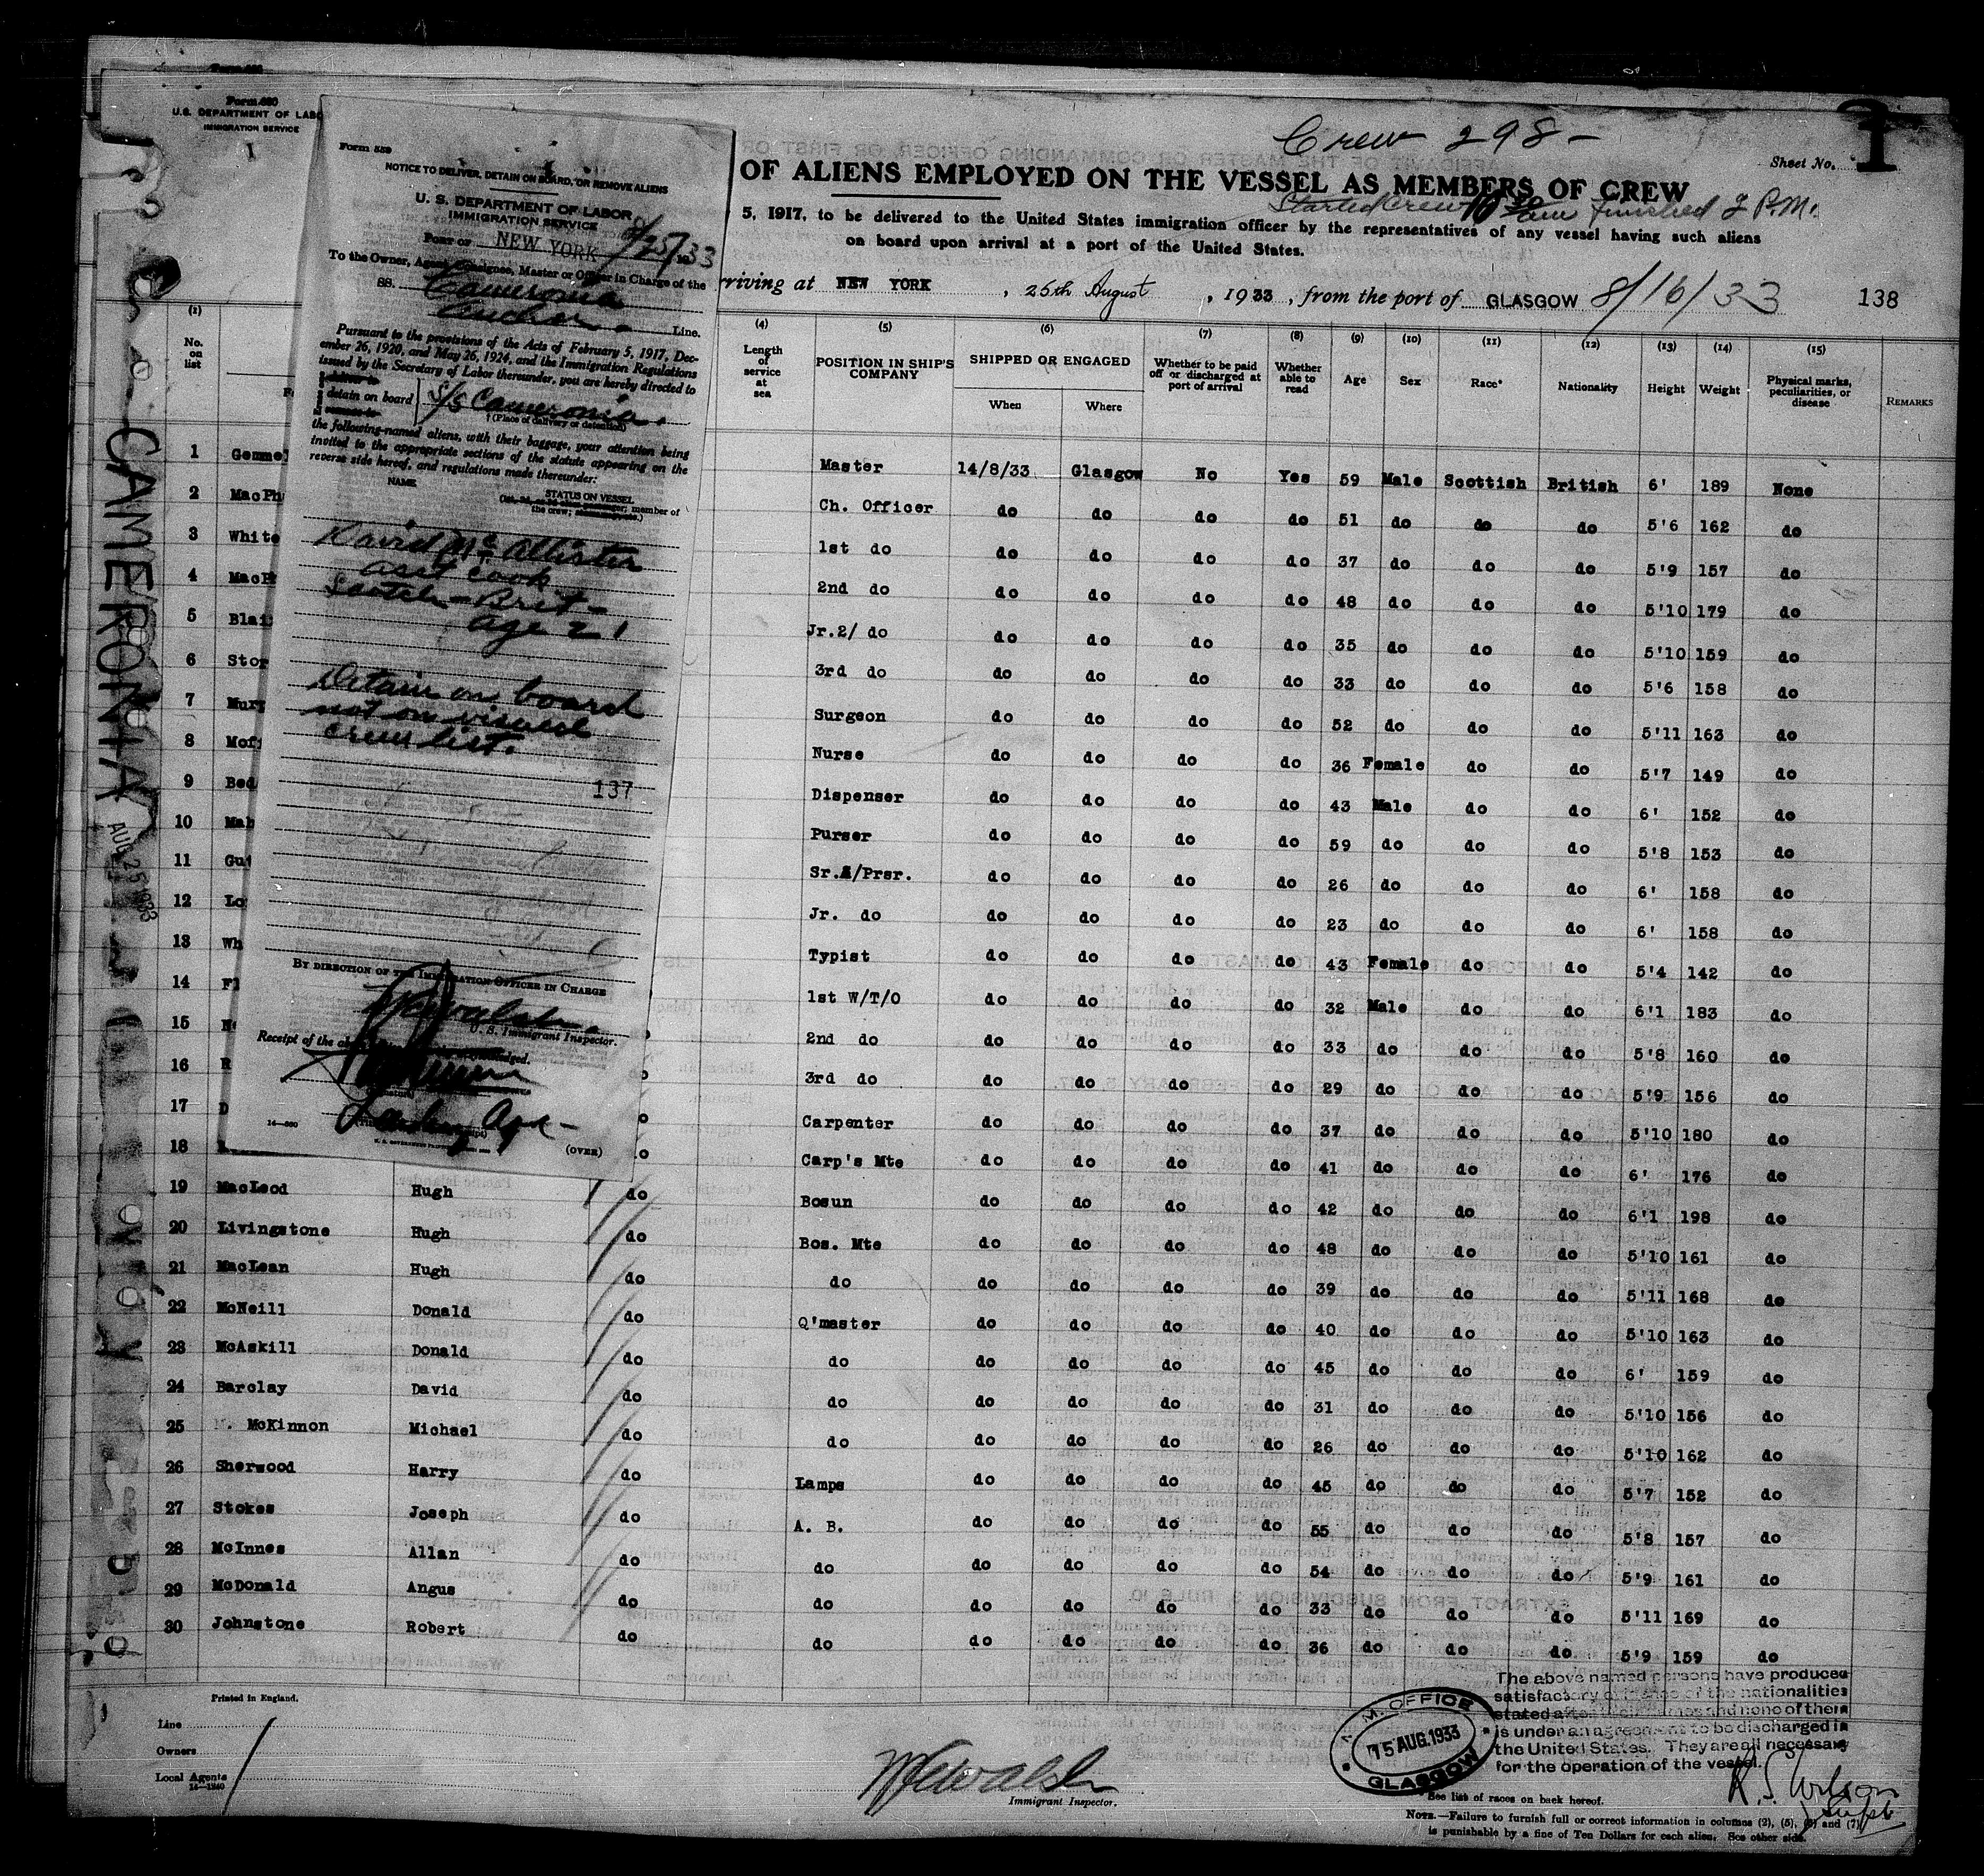 Form 680
U.S. DEPARTMENT OF LABO
IMMIGRATION SERVICE
1
Crew 298 -
Sheet No. 1
OF ALIENS EMPLOYED ON THE VESSEL AS MEMBERS OF CREW
Started crew 10 30 am finished 2 P.M.
5, 1917, to be delivered to the United States immigration officer by the representatives of any vessel having such aliens
on board upon arrival at a port of the United States.
rriving at NEW YORK , 25th August , 1933 , from the port of GLASGOW 8/16/33 138
Form 559
NOTICE TO DELIVER, DETAIN ON BOARD, OR REMOVE ALIENS
U. S. DEPARTMENT OF LABOR
IMMIGRATION SERVICE
PORT OF NEW YORK 8/25/33
To the Owner, Agent, Consignee, Master or Officer in Charge of the
SS. Cameronia
Anchor Line.
Pursuant to the provisions of the Acts of February 5, 1917, Dec-
ember 26, 1920, and May 26, 1924, and the Immigration Regulations
issued by the Secretary of Labor thereunder, you are hereby directed to
detain on board S/S Cameronia.
(Place of delivery or detention)
the following-named aliens, with their baggage, your attention being
invited to the appropriate sections of the statute appearing on the
reverse side hereof, and regulations made thereunder:
NAME STATUS ON VESSEL
member of
the crew;
David Mc Allister
asst cook
Scotch - Brit -
age 21
Detain on board
not on visaed
crew list.
137
BY DIRECTION OF THE IMMIGRATION OFFICER IN CHARGE
U. S. Immigrant Inspector.
Receipt of the
(OVER)
CAMERONIA
AUG 25 1933
(1) (4) (5) (6) (7) (8) (9) (10) (11) (12) (13) (14) (15)
No. on list Length of service at sea POSITION IN SHIP'S COMPANY SHIPPED OR ENGAGED When Where Whether to be paid off or discharged at port of arrival Whether able to read Age Sex Race* Nationality Height Weight Physical marks, peculiarities, or disease REMARKS
1 Gemme Master 14/8/33 Glasgow No Yes 59 Male Scottish British 6' 189 None
2 MacPh Ch. Officer do do do do 51 do do do 5'6 162 do
3 White 1st do do do do do 37 do do do 5'9 157 do
4 MacP 2nd do do do do do 48 do do do 5'10 179 do
5 Blai Jr.2/ do do do do do 35 do do do 5'10 159 do
6 Stor 3rd do do do do do 33 do do do 5'6 158 do
7 Murp Surgeon do do do do 52 do do do 5'11 163 do
8 Mof Nurse do do do do 36 Female do do 5'7 149 do
9 Bed Dispenser do do do do 43 Male do do 6' 152 do
10 Mab Purser do do do do 59 do do do 5'8 153 do
11 Gu Sr.A/Prsr. do do do do 26 do do do 6' 158 do
12 Lo Jr. do do do do do 23 do do do 6' 158 do
13 Wh Typist do do do do 43 Female do do 5'4 142 do
14 F 1st W/T/O do do do do 32 Male do do 6'1 183 do
15 2nd do do do do do 33 do do do 5'8 160 do
16 R 3rd do do do do do 29 do do do 5'9 156 do
17 D Carpenter do do do do 37 do do do 5'10 180 do
18 Carp's Mte do do do do 41 do do do 6' 176 do
19 MacLeod Hugh do Bosun do do do do 42 do do do 6'1 198 do
20 Livingstone Hugh do Bos. Mte do do do do 48 do do do 5'10 161 do
21 MacLean Hugh do do do do do do 39 do do do 5'11 168 do
22 McNeill Donald do Q'master do do do do 40 do do do 5'10 163 do
23 McAskill Donald do do do do do do 45 do do do 6' 159 do
24 Barclay David do do do do do do 31 do do do 5'10 156 do
25 McKinnon Michael do do do do do do 26 do do do 5'10 162 do
26 Sherwood Harry do Lamps do do do do 45 do do do 5'7 152 do
27 Stokes Joseph do A. B. do do do do 55 do do do 5'8 157 do
28 McInnes Allan do do do do do do 54 do do do 5'9 161 do
29 McDonald Angus do do do do do do 33 do do do 5'11 169 do
30 Johnstone Robert do do do do do do 36 do do do 5'9 159 do
Printed in England.
Line
Owners
Local Agents
14—1240
Immigrant Inspector.
M. OFFICE
15 AUG. 1933
GLASGOW
The above named persons have produced
satisfactory evidence of the nationalities
stated after their names and none of them
is under an agreement to be discharged in
the United States. They are all necessary
for the operation of the vessel.
K. S. Wilson
Supt
See list of races on back hereof.
NOTE.—Failure to furnish full or correct information in columns (2), (5), (6) and (7)
is punishable by a fine of Ten Dollars for each alien. See other side.